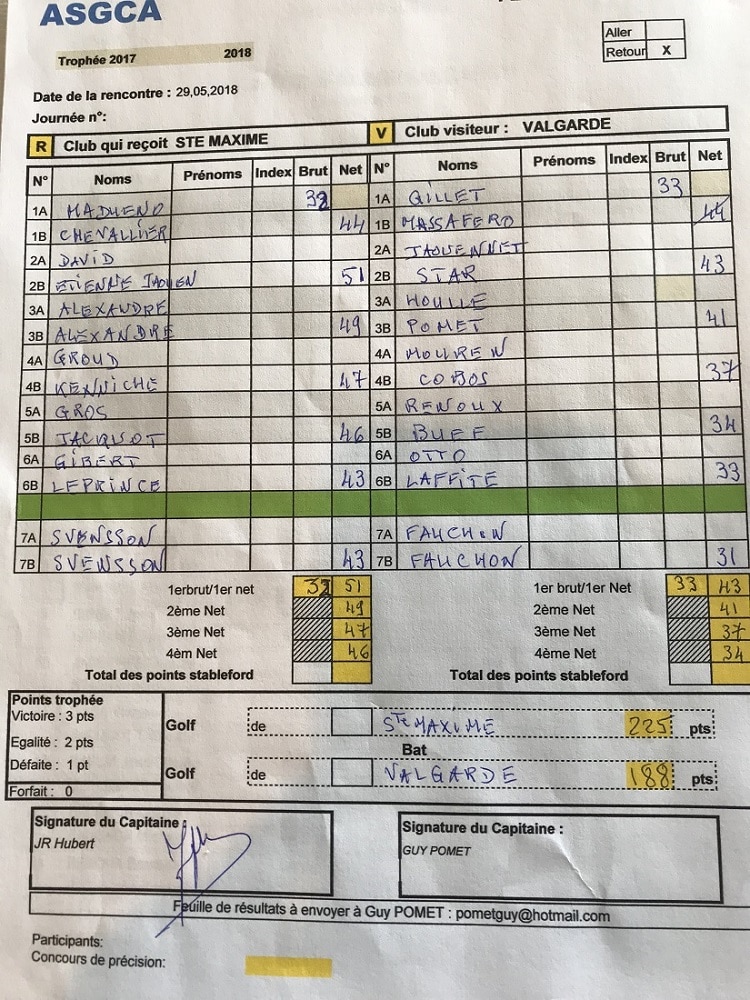 ASGCA
Trophée 2017 2018
Aller
Retour X
Date de la rencontre : 29,05,2018
Journée n°:
R Club qui reçoit STE MAXIME V Club visiteur : VALGARDE
N° Noms Prénoms Index Brut Net N° Noms Prénoms Index Brut Net
1A MADUENO 32 1A GILLET 33
1B CHEVALLIER 44 1B MASSAFERO 44
2A DAVID 2A JAOUENNET
2B ETIENNE JAOUEN 51 2B STAR 43
3A ALEXANDRE 3A HOULLE
3B ALEXANDRE 49 3B POMET 41
4A GROUD 4A MOUREN
4B KENNICHE 47 4B COBOS 37
5A GROS 5A RENOUX
5B JACQUOT 46 5B BUFF 34
6A GIBERT 6A OTTO
6B LEPRINCE 43 6B LAFFITE 33
7A SVENSSON 7A FAUCHON
7B SVENSSON 43 7B FAUCHON 31
1erbrut/1er net 32 51 1er brut/1er Net 33 43
2ème Net 49 2ème Net 41
3ème Net 47 3ème Net 37
4èm Net 46 4ème Net 34
Total des points stableford Total des points stableford
Points trophée
Victoire : 3 pts
Egalité : 2 pts
Défaite : 1 pt
Forfait : 0
Golf de STE MAXIME 225 pts
Bat
Golf de VALGARDE 188 pts
Signature du Capitaine : Signature du Capitaine :
JR Hubert GUY POMET
Feuille de résultats à envoyer à Guy POMET : pometguy@hotmail.com
Participants:
Concours de précision: